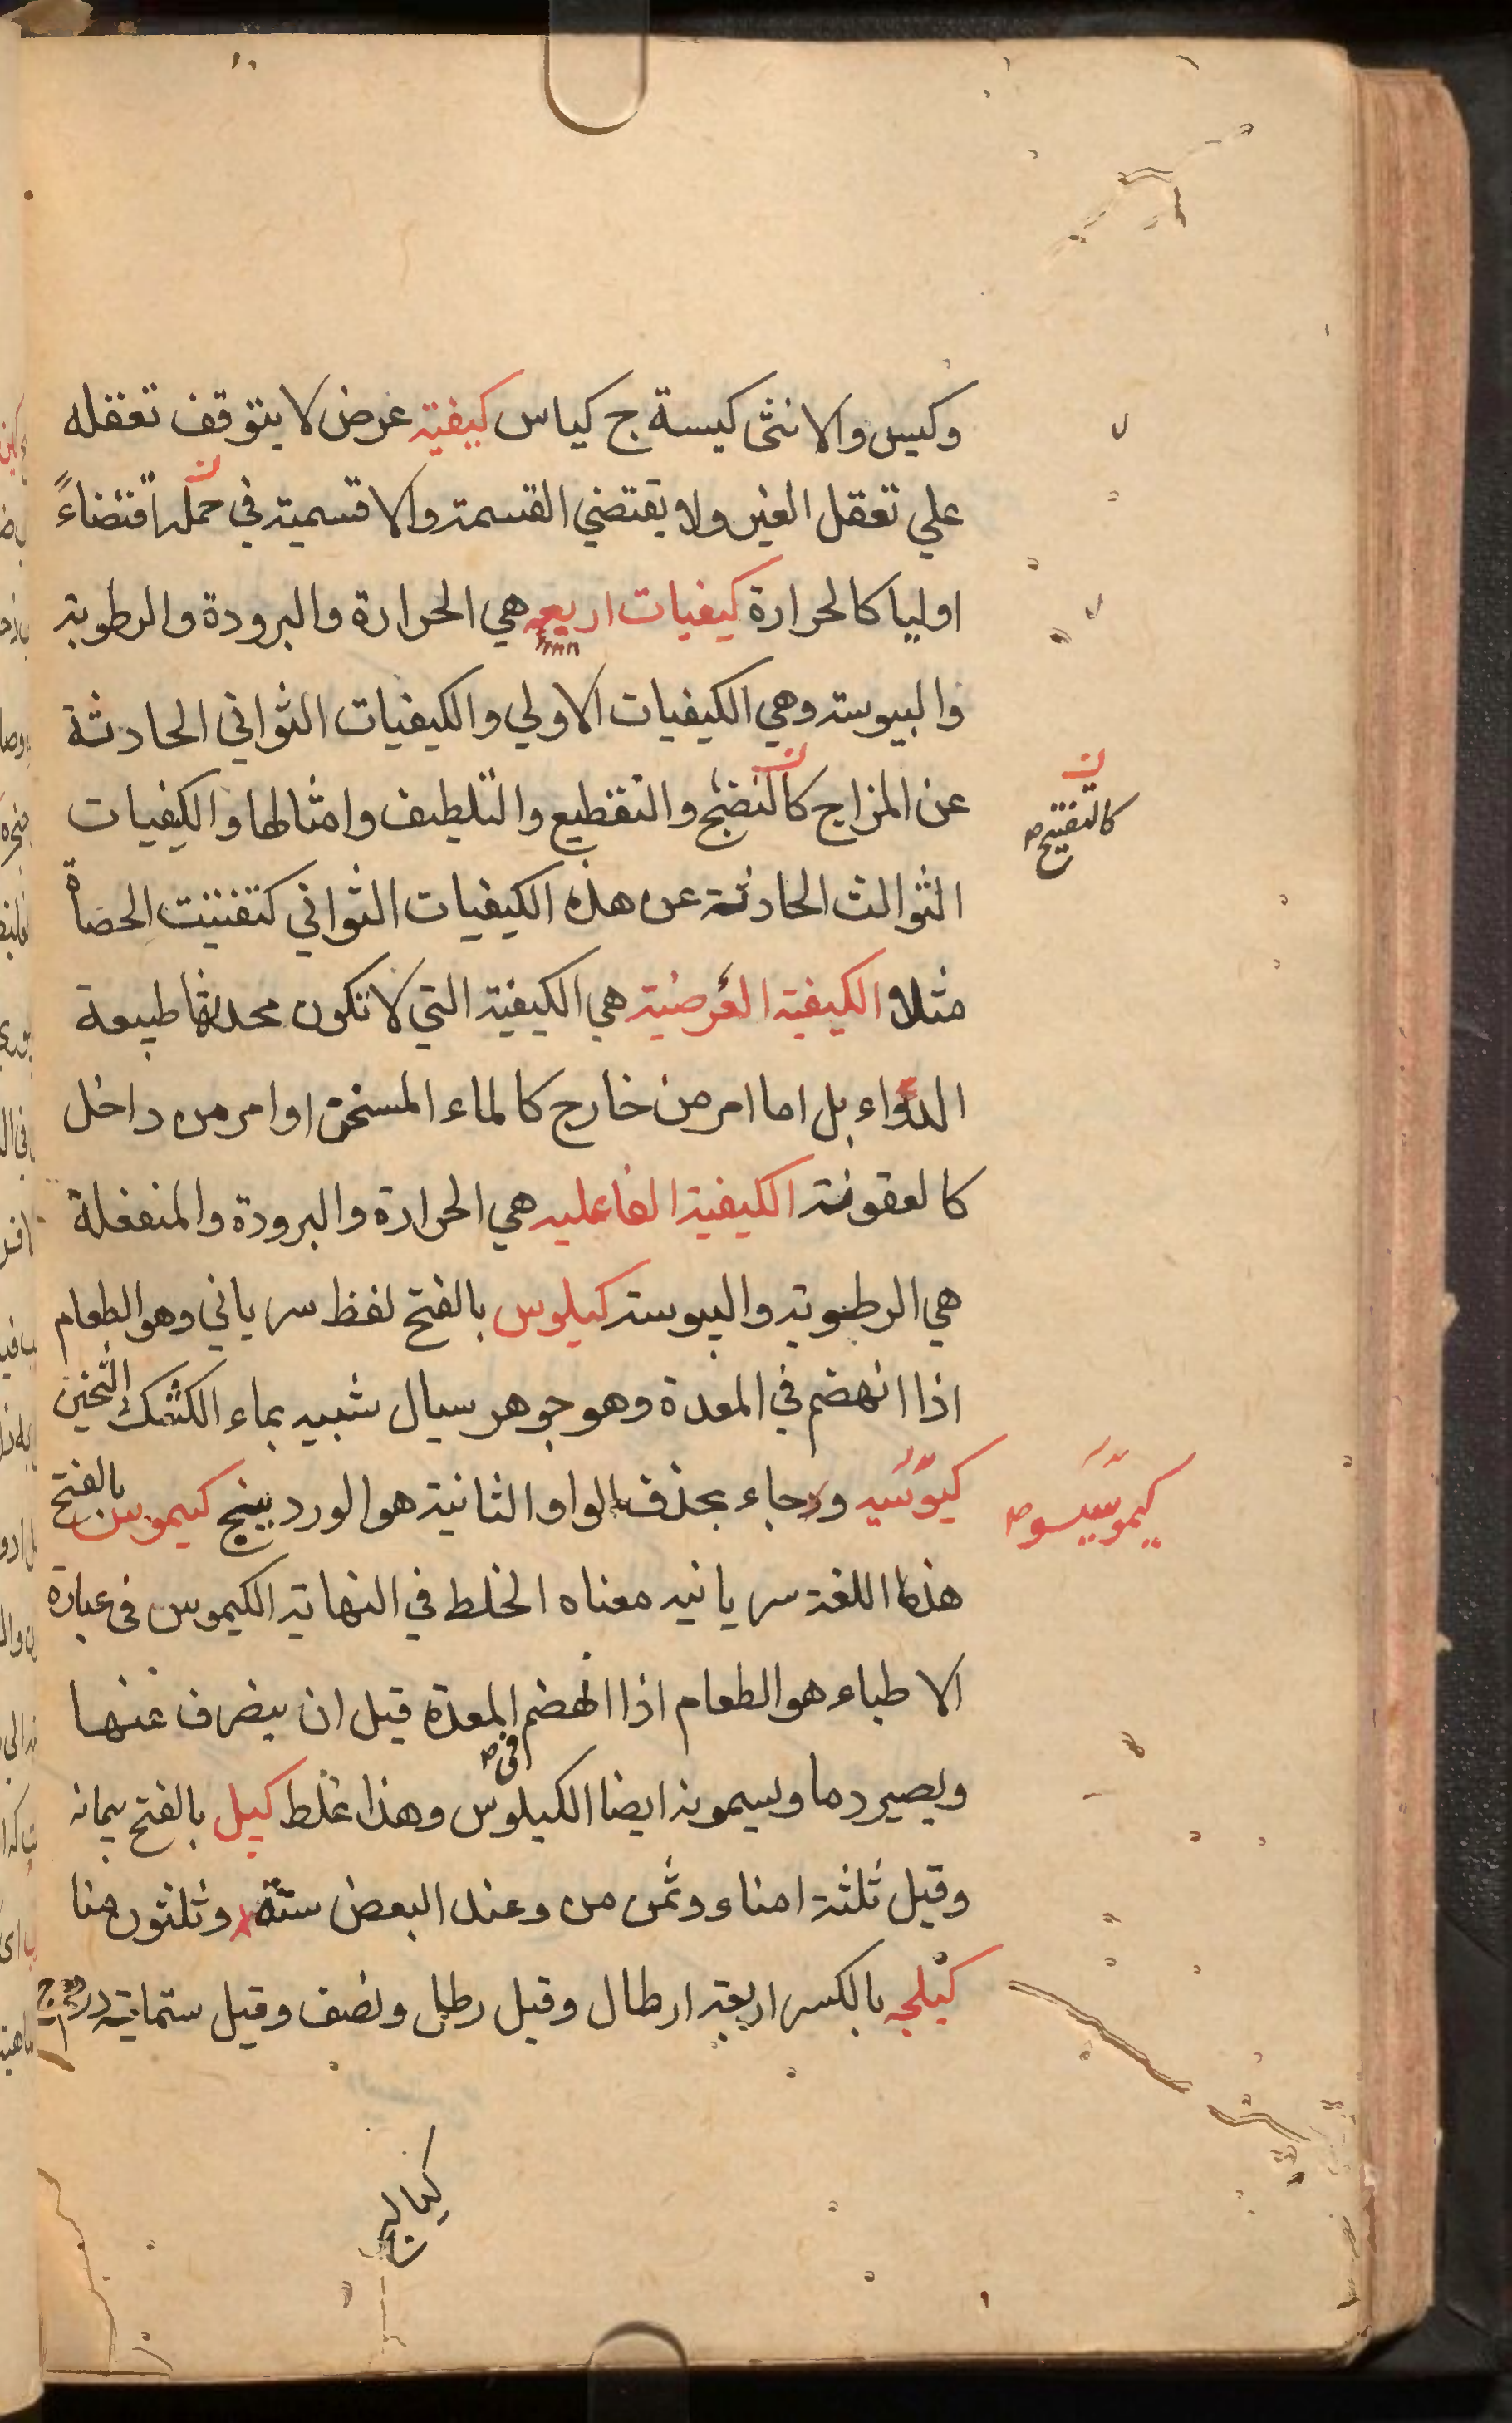 وكيس والانثى كيسة ج كياس كيفية عرض لا يتوقف تعقله
علي تعقل الغير ولا يقتضي القسمة والاقسمية في حمله اقتضاءً
اوليا كالحرارة كيفيات اربعه هي الحرارة والبرودة والرطوبة
واليبوسة وهي الكيفيات الاولي والكيفيات الثواني الحادثة
عن المزاج كالنضج والتقطيع والتلطيف وامثالها والكيفيات
كالتفتيح
الثوالث الحادثة عن هذه الكيفيات الثواني كتفتيت الحصاة
مثلا الكيفية العرضية هي الكيفية التي لا تكون محدثها طبيعة
الدواء بل اما امر من خارج كالماء المسخن او امر من داخل
كالعفونة الكيفية الفاعليه هي الحرارة والبرودة والمنفعلة
هي الرطوبة واليبوسة كيلوس بالفتح لفظ سرياني وهو الطعام
اذا انهضم في المعدة وهو جوهر سيال شبيه بماء الكشك الثخين
كيوسيه وجاء بحذف الواو الثانية هو الورد بينج كيموس بالفتح
هذه اللغة سريانيه معناه الخلط في النهاية الكيموس في عبارة
الاطباء هو الطعام اذا انهضم في المعدة قبل ان يصرف عنها
ويصير دما ويسمونه ايضا الكيلوس وهذا غلط كيل بالفتح پيمانه
وقيل ثلثة امناء وثمن من وعند البعض ستة وثلثون منا
كيلجه بالكسر اربعة ارطال وقيل رطل ونصف وقيل ستماية درهم ج
كيالج